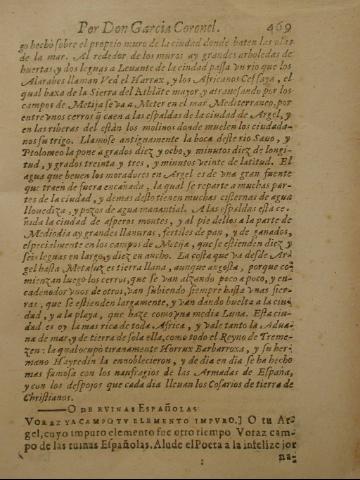 Por Don Garcia Coronel. 469
go hecho sobre el proprio muro de la ciudad donde baten las olas
de la mar. Al rededor de los muros ay grandes arboledas de
huertas, y dos leguas a Leuante de la ciudad passa vn rio que los
Alarabes llaman Ved el Harrax, y los Africanos Cessaya, el
qual baxa de la Sierra del Athlâte mayor, y atrauesando por los
campos de Metija se va a Meter en el mar Mediterraneo, por
entre vnos cerros q̃ caen a las espaldas de la ciudad de Argel, y
en las riberas del estàn los molinos donde muelen los ciudada-
nos su trigo. Llamose antiguamente la boca deste rio Sauo, y
Ptolomeo la pone a grados diez y ocho, y minutos diez de longi-
tud, y grados treinta y tres, y minutos veinte de latitud. El
agua que beuen los moradores en Argel es de vna gran fuente
que traen de fuera encañada, la qual se reparte a muchas par-
tes de la ciudad, y demas desto tienen muchas cisternas de agua
llouediza, y pozos de agua manantial. A las espaldas està ce-
ñida la ciudad de asperos montes, y al pie dellos a la parte de
Mediodia ay grandes llanuras, fertiles de pan, y de ganados,
especialmente en los campos de Motija, que se estienden diez y
seis leguas en largo, y diez en ancho. La costa que va desde Ar-
gel hasta Metafuz es tierra llana, aunque angosta, porque co-
mienzan luego los cerros, que se van alzando poco a poco, y en-
cadenados vnos de otros, van subiendo siempre hasta vnas sier-
ras, que se estienden largamente, y van dando buelta a la ciu-
dad, y a la playa, que haze como vna media Luna. Esta ciu-
dad es oy la mas rica de toda Africa, y vale tanto la Adua-
na de mar, y de tierra de sola ella, como todo el Reyno de Treme-
zen: la qual ocupò tiranamente Horrux Barbarroxa, y su her-
mano Hayredin la ennoblecieron, y de dia en dia se ha hecho
mas famosa con los naufragios de las Armadas de España,
y con los despojos que cada dia lleuan los Cosarios de tierra de
Christianos.
——— O DE RUINAS ESPAÑOLAS
VORAZ YA CAMPO TV ELEMENTO IMPVRO.] O tu Ar-
gel, cuyo impuro elemento fue otro tiempo Voraz cam-
po de las ruinas Españolas. Alude el Poeta a la infelize jor
na-